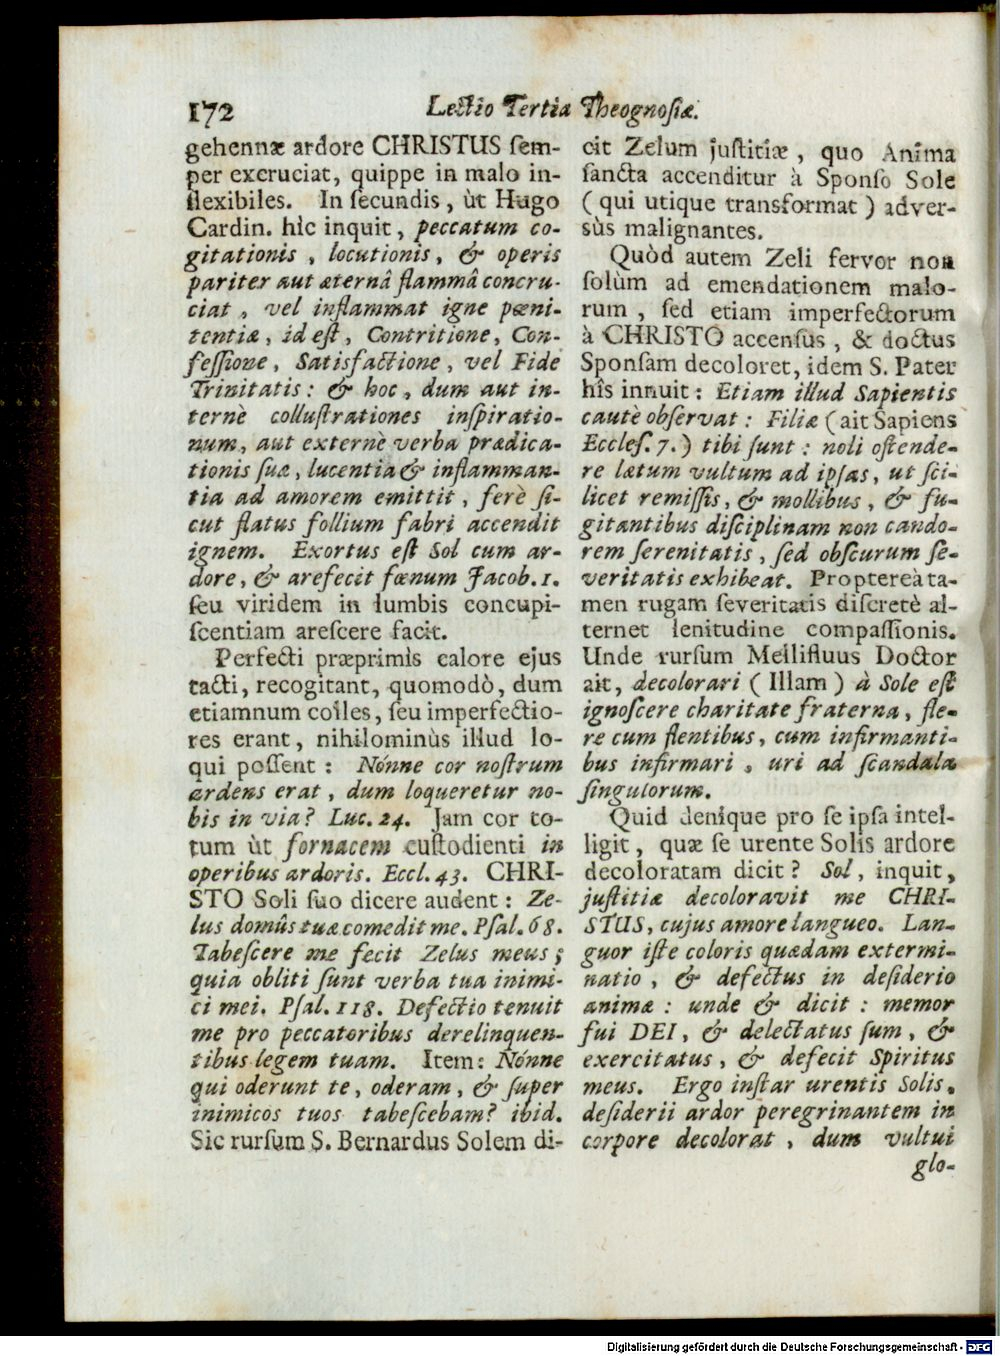 172
Lectio Tertia Theognosiæ.
gehennæ ardore CHRISTUS ſem-
per excruciat, quippe in malo in-
flexibiles. In ſecundis, ùt Hugo
Cardin. hîc inquit, peccatum co-
gitationis, locutionis, & operis
pariter aut æternâ flammâ concru-
ciat, vel inflammat igne pœni-
tentiæ, id eſt, Contritione, Con-
feſſione, Satisfactione, vel Fide
Trinitatis: & hoc, dum aut in-
ternè colluſtrationes inſpiratio-
num, aut externè verba prædica-
tionis ſuæ, lucentia & inflamman-
tia ad amorem emittit, ferè ſi-
cut flatus follium fabri accendit
ignem. Exortus eſt Sol cum ar-
dore, & arefecit fœnum Jacob. 1.
ſeu viridem in lumbis concupi-
ſcentiam areſcere facit.
Perfecti præprimìs calore ejus
tacti, recogitant, quomodò, dum
etiamnum colles, ſeu imperfectio-
res erant, nihilominùs illud lo-
qui poſſent: Nónne cor noſtrum
ardens erat, dum loqueretur no-
bis in via? Luc. 24. Jam cor to-
tum ùt fornacem cuſtodienti in
operibus ardoris. Eccl. 43. CHRI-
STO Soli ſuo dicere audent: Ze-
lus domûs tuæ comedit me. Pſal. 68.
Tabeſcere me fecit Zelus meus;
quia obliti ſunt verba tua inimi-
ci mei. Pſal. 118. Defectio tenuit
me pro peccatoribus derelinquen-
tibus legem tuam. Item: Nónne
qui oderunt te, oderam, & ſuper
inimicos tuos tabeſcebam? ibid.
Sic rurſum S. Bernardus Solem di-
cit Zelum juſtitiæ, quo Anima
ſancta accenditur à Sponſo Sole
(qui utique transformat) adver-
sùs malignantes.
Quòd autem Zeli fervor non
ſolùm ad emendationem malo-
rum, ſed etiam imperfectorum
à CHRISTO accenſus, & doctus
Sponſam decoloret, idem S. Pater
hîs innuit: Etiam illud Sapientis
cautè obſervat: Filiæ (ait Sapiens
Eccleſ. 7.) tibi ſunt: noli oſtende-
re lætum vultum ad ipſas, ut ſci-
licet remiſſis, & mollibus, & fu-
gitantibus diſciplinam non cando-
rem ſerenitatis, ſed obſcurum ſe-
veritatis exhibeat. Proptereà ta-
men rugam ſeveritatis diſcretè al-
ternet lenitudine compaſſionis.
Unde rurſum Mellifluus Doctor
ait, decolorari (Illam) à Sole eſt
ignoſcere charitate fraterna, fle-
re cum flentibus, cum infirmanti-
bus infirmari, uri ad ſcandala
ſingulorum.
Quid denique pro ſe ipſa intel-
ligit, quæ ſe urente Solis ardore
decoloratam dicit? Sol, inquit,
juſtitiæ decoloravit me CHRI-
STUS, cujus amore langueo. Lan-
guor iſte coloris quædam extermi-
natio, & defectus in deſiderio
animæ: unde & dicit: memor
fui DEI, & delectatus ſum, &
exercitatus, & defecit Spiritus
meus. Ergo inſtar urentis Solis,
deſiderii ardor peregrinantem in
corpore decolorat, dum vultui
glo-
Digitalisierung gefördert durch die Deutsche Forschungsgemeinschaft - DFG